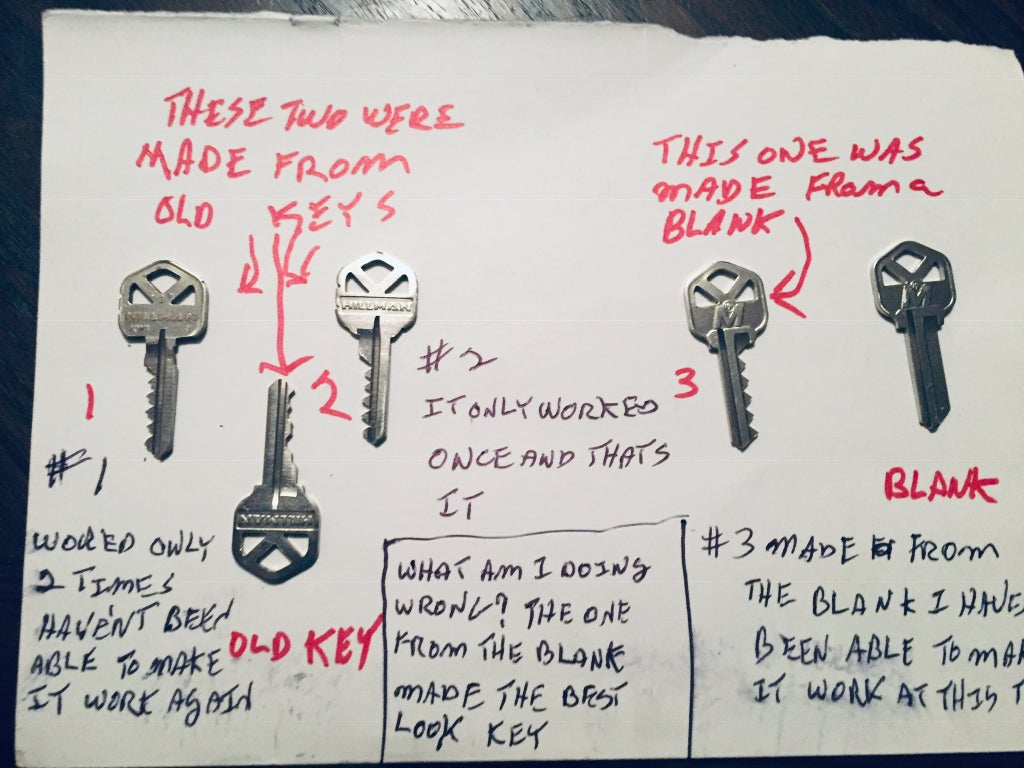 THESE TWO WERE
MADE FROM
OLD KEYS
THIS ONE WAS
MADE FROM a
BLANK
HILLMAN
HILLMAN
M
M
1
2
3
HILLMAN
#1
WORKED ONLY
2 TIMES
HAVEN'T BEEN
ABLE TO MAKE
IT WORK AGAIN
OLD KEY
#2
IT ONLY WORKED
ONCE AND THATS
IT
WHAT AM I DOING
WRONG? THE ONE
FROM THE BLANK
MADE THE BEST
LOOK KEY
BLANK
#3 MADE FROM
THE BLANK I HAVE
BEEN ABLE TO MA
IT WORK AT THIS T